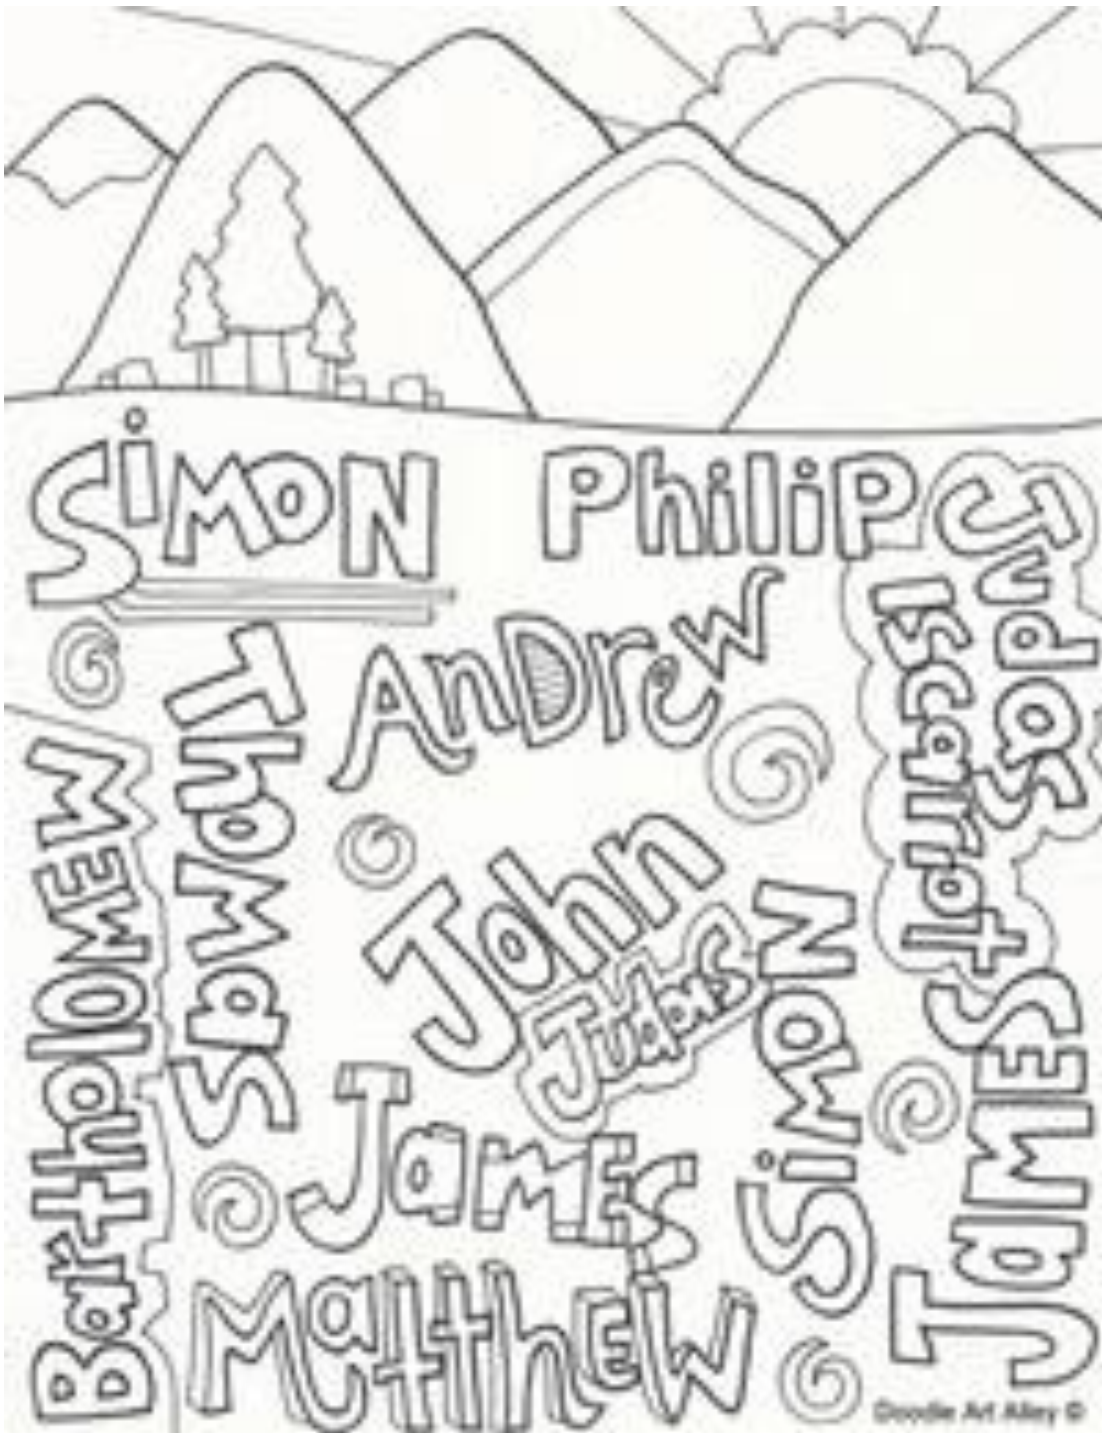 SiMON
PhiliP
Judas
Iscariot
AnDrew
Thomas
BartholoMEW
John
Judas
SiMON
JaMES
JaMES
MatthEW
Doodle Art Alley ©